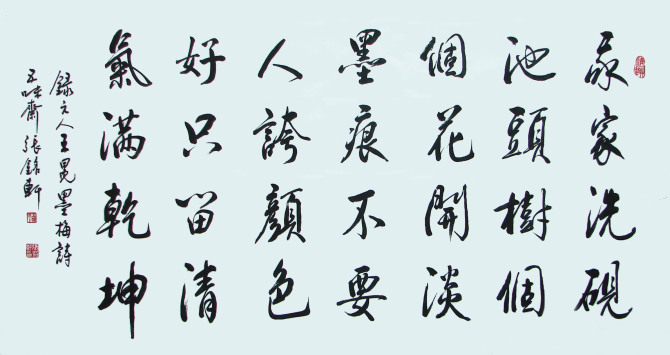 我家洗硯
池頭樹個
個花開淡
墨痕不要
人誇顏色
好只留清
氣滿乾坤
錄元人王冕墨梅詩
齋張銘軒